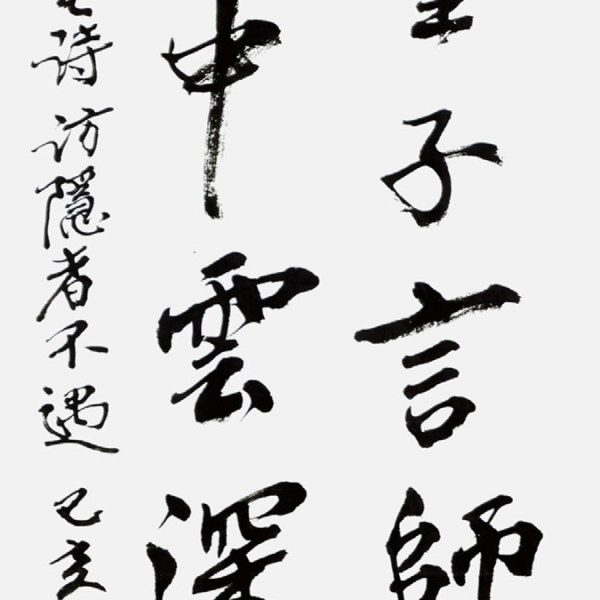 童子言師
中雲深
詩訪隱者不遇
己亥